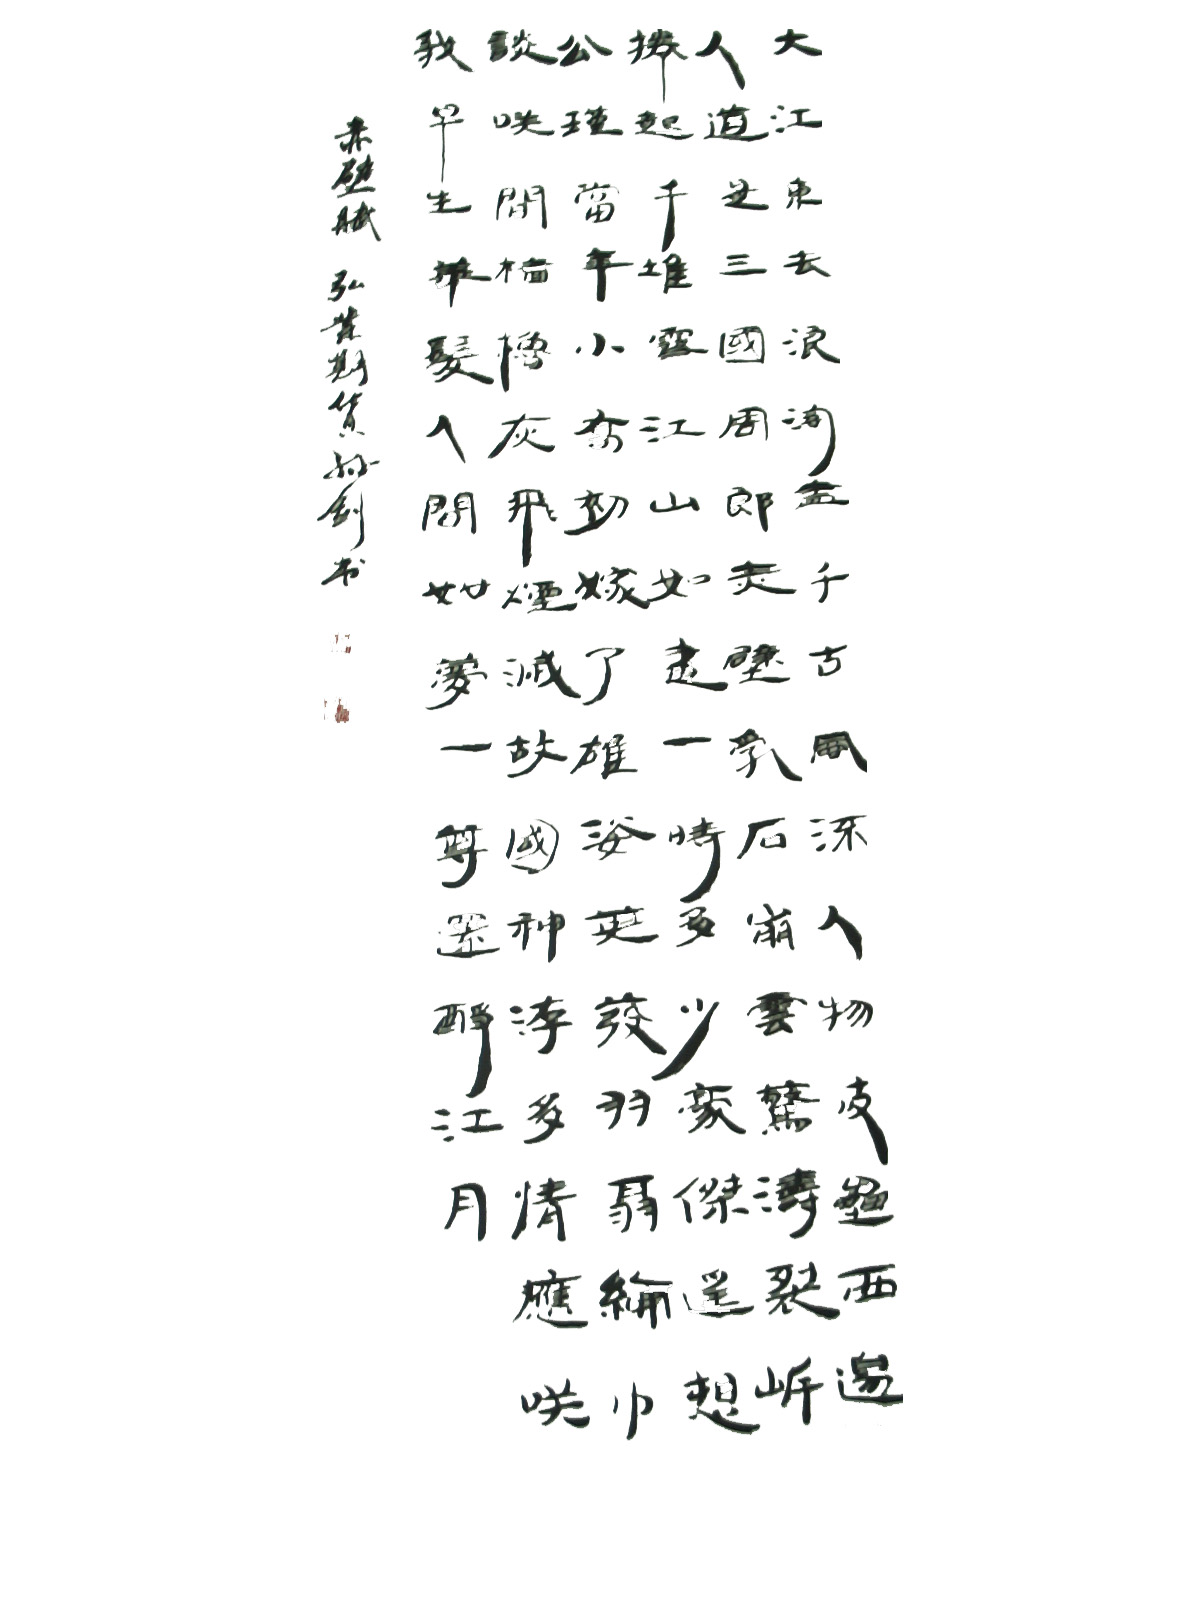 大江東去浪淘盡千古風流人物故壘西邊
人道是三國周郎赤壁乳石崩雲驚濤裂岸
捲起千堆雪江山如畫一時多少豪傑遥想
公瑾當年小喬初嫁了雄姿英發羽扇綸巾
談咲間檣櫓灰飛煙滅故國神游多情應咲
我早生華髮人間如夢一尊還酹江月
赤壁賦 弘業期貨孙剑书